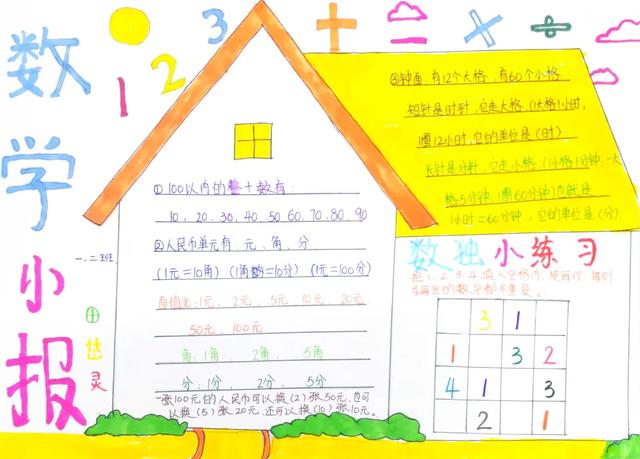 数学小报
1 2 3 + = × ÷
一.二班
田
灵
①100以内的整十数有:
10、20、30、40、50、60、70、80、90
②人民币单元有、元、角、分
(1元=10角) (1角=10分) (1元=100分)
面值元:1元、2元、5元、10元、20元
50元、100元
角:1角、2角、5角
分:1分、2分、5分
一张100元的人民币可以换(2)张50元,也可
以换(5)张20元,还可以换(10)张10元。
③钟面,有12个大格,有60个小格
短针是时针,它走大格,(1大格1小时,
1圈12小时,它的单位是(时)
长针是分针,它走小格,(1小格1分钟,一大
格5分钟,1圈60分钟)也就是
1小时=60分钟,它的单位是(分)
数独小练习
把1、2、3、4填入空格内,使每行、每列
的数字都不重复。
3 1
1 3 2
4 1 3
2 1